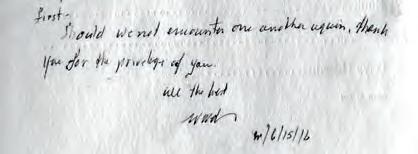 first-
Should we not encounter one another again, thank
you for the privilege of you.
all the best
6/15/16